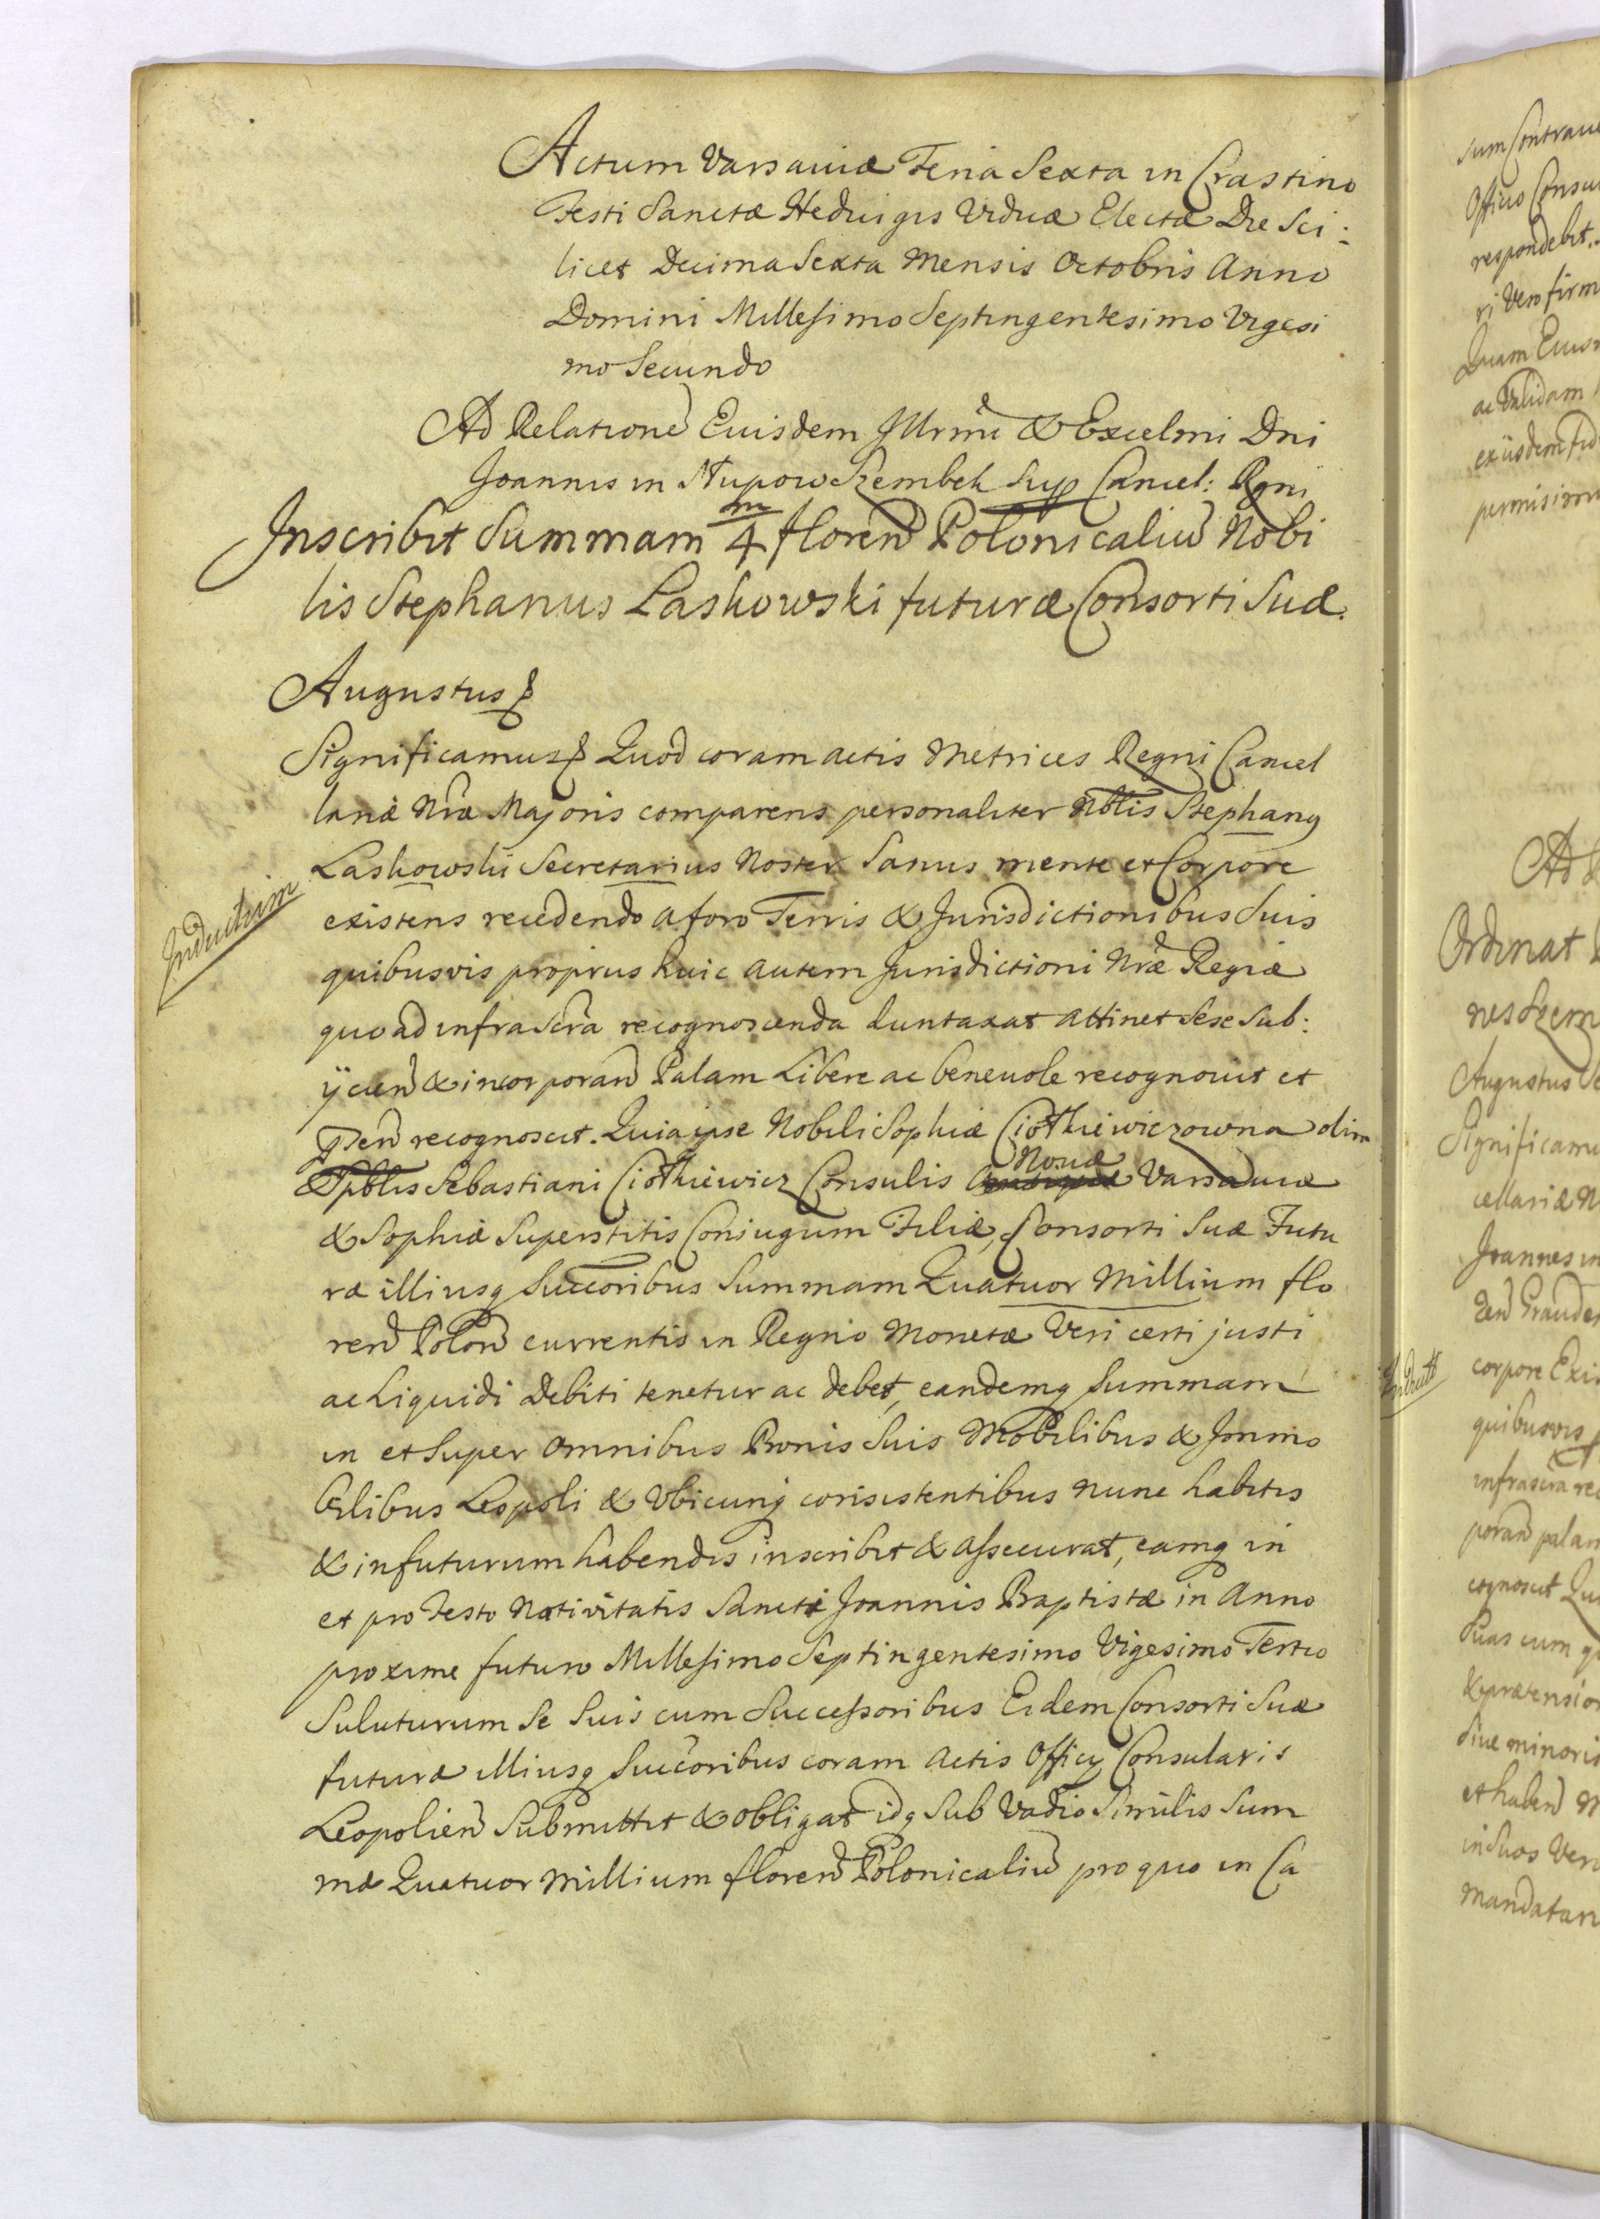 Actum Varsaviæ Feria Sexta in Crastino
Festi Sanctæ Hedvigis Viduæ Electæ Die Sci:
licet Decima Sexta Mensis Octobris Anno
Domini Millesimo Septingentesimo Vigesi
mo Secundo
Ad Relatione Eiusdem Illrmi & Excelmi Dni
Joannis in Słupow Szembek Sup Cancel: Rgni
Inscribit Summam 4 m floren Polonicaliu Nobi
lis Stephanus Laskowski futuræ Consorti Suæ.
Augustus
Significamus Quod coram actis Metrices Regni Cancel
lariæ Nræ Majoris comparens personaliter Nblis Stephang
Laskowski Secretarius Noster Sanus mente et Corpore
existens recedendo a foro Terris & Jurisdictionibus Suis
quibusvis proprius huic autem Jurisdictioni Nræ Regiæ
quo ad infrascra recognoscenda duntaxat attinet Sese Sub:
ÿcien & incorporan Palam Libere ac benevole recognovit et
Pen recognoscit. Quia ipse Nobili Sophiæ Ciołkiewiczowna olim
Spblis Sebastiani Ciołkiewicz Consulis Novæ Varsaviæ
& Sophiæ Superstitis Coniugum Filiæ, Consorti Suæ Futu
ræ illiusq Succoribus Summam Quatuor Millium flo
ren Polon currentis in Regno Monetæ Veri certi justi
ac Liquidi Debiti tenetur ac debet, eandemq Summam
in et Super omnibus Bonis Suis Mobilibus & Immo
bilibus Leopoli & Ubicunq consistentibus nunc habitis
& in futurum habendis inscribit & assecurat, eamq in
et pro Festo Nativitatis Sancti Joannis Baptistæ in Anno
proxime futuro Millesimo Septingentesimo Vigesimo Tertio
Soluturum Se Suis cum Successoribus Eidem Consorti Suæ
futuræ illiusq Succoribus coram Actis Officy Consularis
Leopolien Submittit & obligat idq Sub Vadio Similis Sum
mæ Quatuor Millium floren Polonicaliu pro quo in Ca
Inductum
sum Contrave
Officio Consu
respondebit.
ri Vero firm
Quam Eius
ac Validam
eiusdem Fid
permisimus
Ordinat
nes Szem
Augustus
Significamu
cellariæ N
Joannes in
corpore Exi
quibusvis
infrascra rec
poran palam
cognoscit Qui
Suas cum q
& prætension
Sive minoris
et haben
in Suos Vero
Mandatan